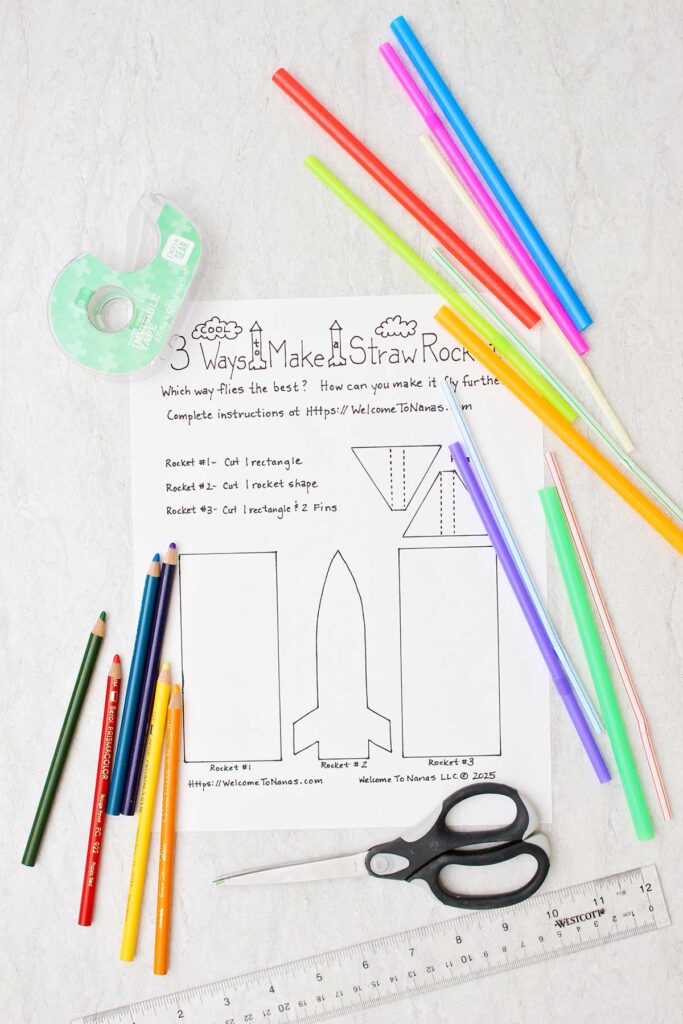 COOL
3 Ways to Make a Straw
Which way flies the best? How can you make it fly
Complete instructions at Https://WelcomeToNanas.
Rocket #1- Cut 1 rectangle
Rocket #2- Cut 1 rocket shape
Rocket #3- Cut 1 rectangle & 2 Fins
Rocket #1
Rocket #2
Rocket #3
Https://WelcomeToNanas.com
Welcome To Nanas LLC © 2025
INVISIBLE
TAPE
PRISMACOLOR
PC 922
WESTCOTT
1 2 3 4 5 6 7 8 9 10 11 12